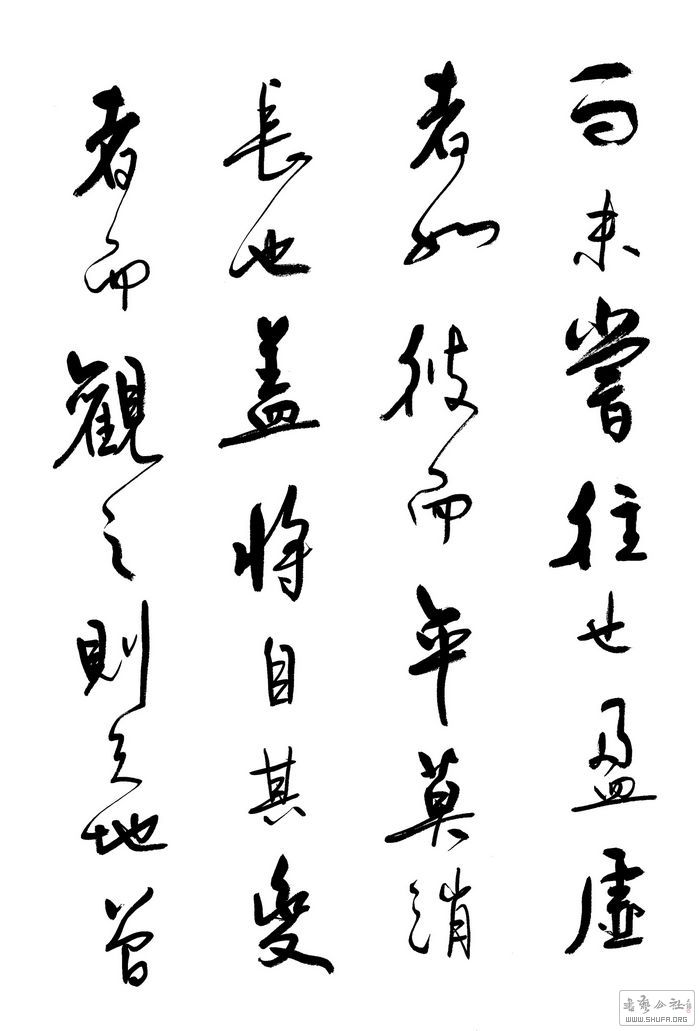 而未嘗往也盈虛
者如彼而卒莫消
長也盖將自其變
者而觀之則天地曾
書藝公社
WWW.SHUFA.ORG